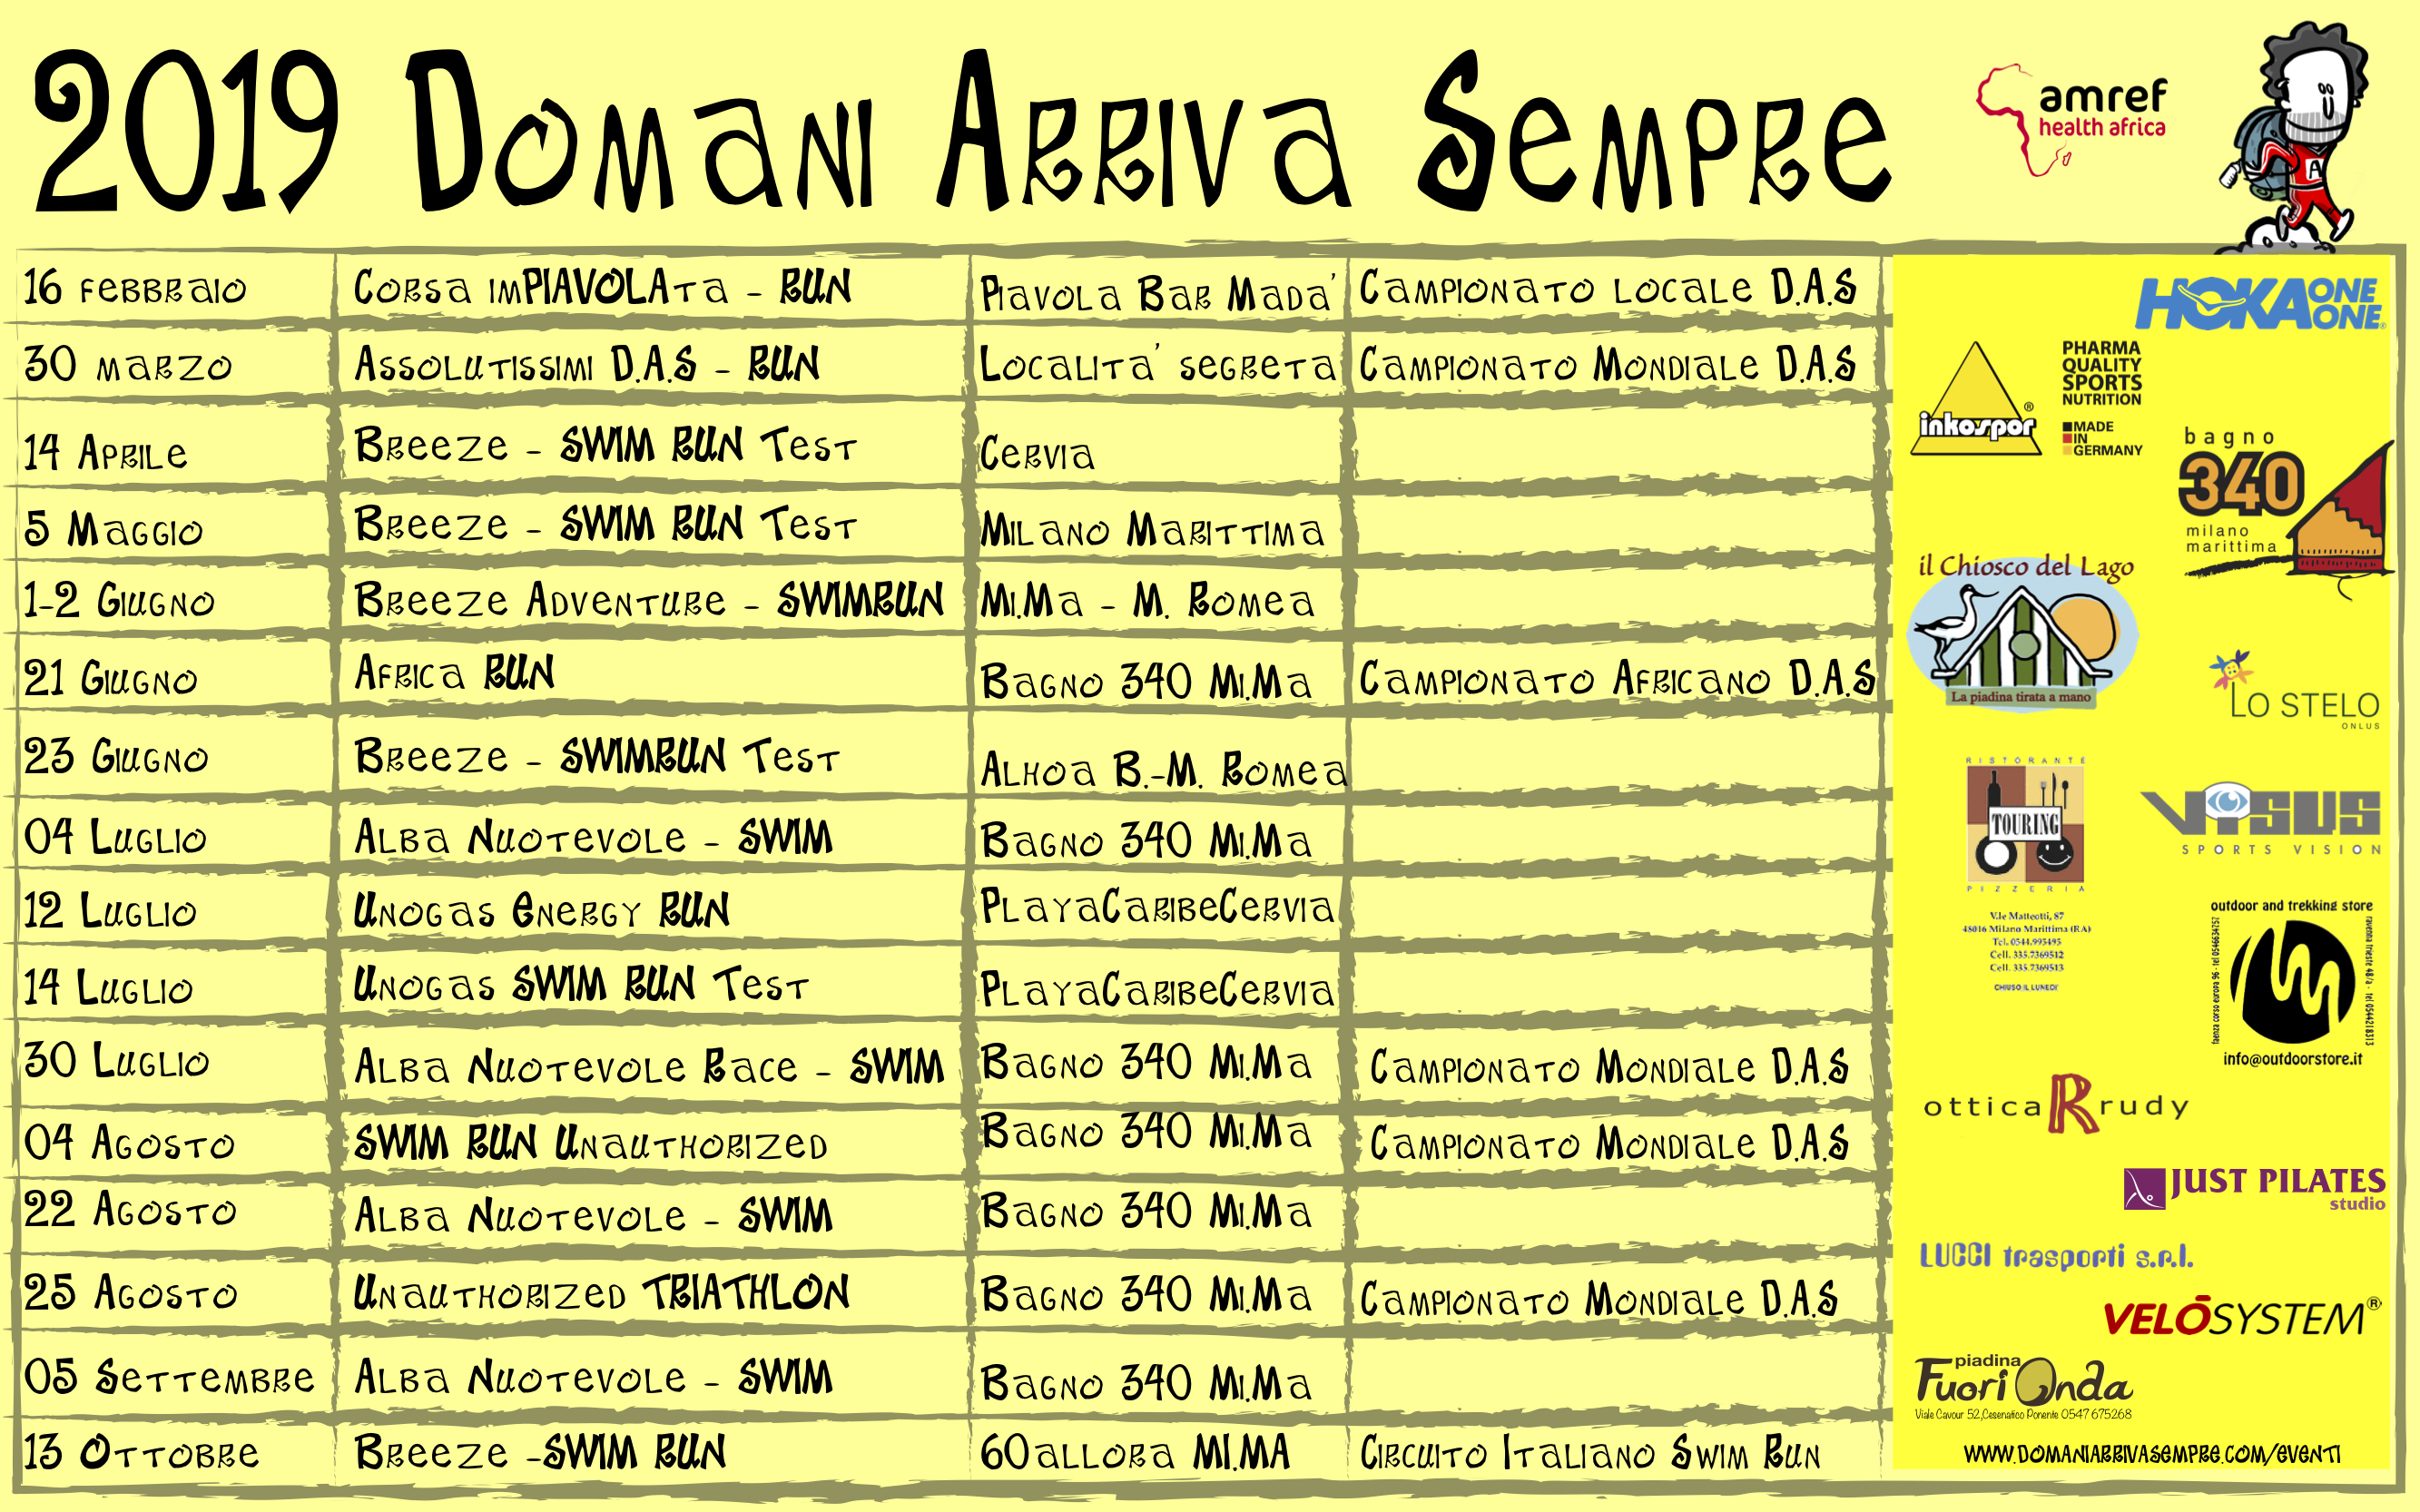 2019 Domani Arriva Sempre
amref
health africa
A
16 febbraio Corsa imPIAVOLAta - RUN Piavola Bar Mada' Campionato locale D.A.S
30 marzo Assolutissimi D.A.S - RUN Localita' segreta Campionato Mondiale D.A.S
14 Aprile Breeze - SWIM RUN Test Cervia
5 Maggio Breeze - SWIM RUN Test Milano Marittima
1-2 Giugno Breeze Adventure - SWIMRUN Mi.Ma - M. Romea
21 Giugno Africa RUN Bagno 340 Mi.Ma Campionato Africano D.A.S
23 Giugno Breeze - SWIMRUN Test Alhoa B.-M. Romea
04 Luglio Alba Nuotevole - SWIM Bagno 340 Mi.Ma
12 Luglio Unogas Energy RUN PlayaCaribeCervia
14 Luglio Unogas SWIM RUN Test PlayaCaribeCervia
30 Luglio Alba Nuotevole Race - SWIM Bagno 340 Mi.Ma Campionato Mondiale D.A.S
04 Agosto SWIM RUN Unauthorized Bagno 340 Mi.Ma Campionato Mondiale D.A.S
22 Agosto Alba Nuotevole - SWIM Bagno 340 Mi.Ma
25 Agosto Unauthorized TRIATHLON Bagno 340 Mi.Ma Campionato Mondiale D.A.S
05 Settembre Alba Nuotevole - SWIM Bagno 340 Mi.Ma
13 Ottobre Breeze -SWIM RUN 60allora MI.MA Circuito Italiano Swim Run
HOKA ONE ONE®
inkospor®
PHARMA
QUALITY
SPORTS
NUTRITION
MADE
IN
GERMANY
bagno
340
milano
marittima
il Chiosco del Lago
La piadina tirata a mano
LO STELO
ONLUS
RISTORANTE
TOURING
PIZZERIA
V.le Matteotti, 87
48016 Milano Marittima (RA)
Tel. 0544.995495
Cell. 335.7369512
Cell. 335.7369513
CHIUSO IL LUNEDI'
VISUS
SPORTS VISION
outdoor and trekking store
faenza corso europa 96 - tel 0546634757
ravenna trieste 48/a - tel 0544218313
info@outdoorstore.it
ottica R rudy
JUST PILATES
studio
LUCCI trasporti s.r.l.
VELOSYSTEM®
piadina
FuoriOnda
Viale Cavour 52,Cesenatico Ponente 0547 675268
www.domaniarrivasempre.com/eventi